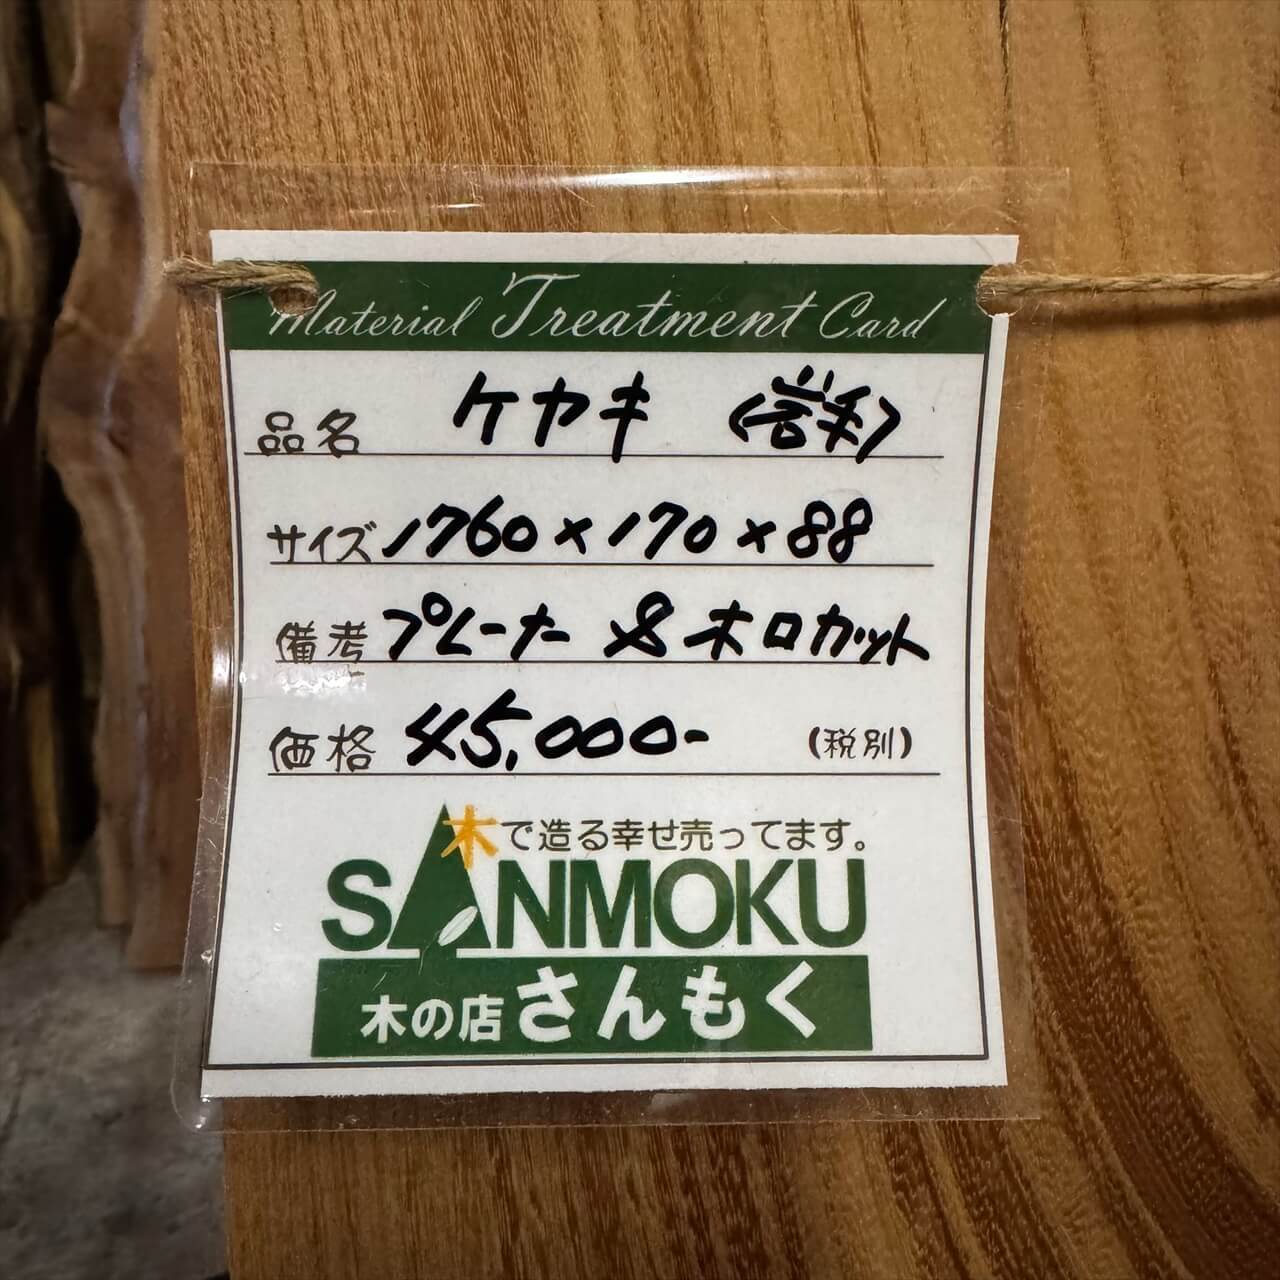 Material Treatment Card
品名 ケヤキ
サイズ 1760×170×88
備考 プレーナー & 木口カット
価格 45,000- (税別)
木で造る幸せ売ってます。
SANMOKU
木の店 さんもく